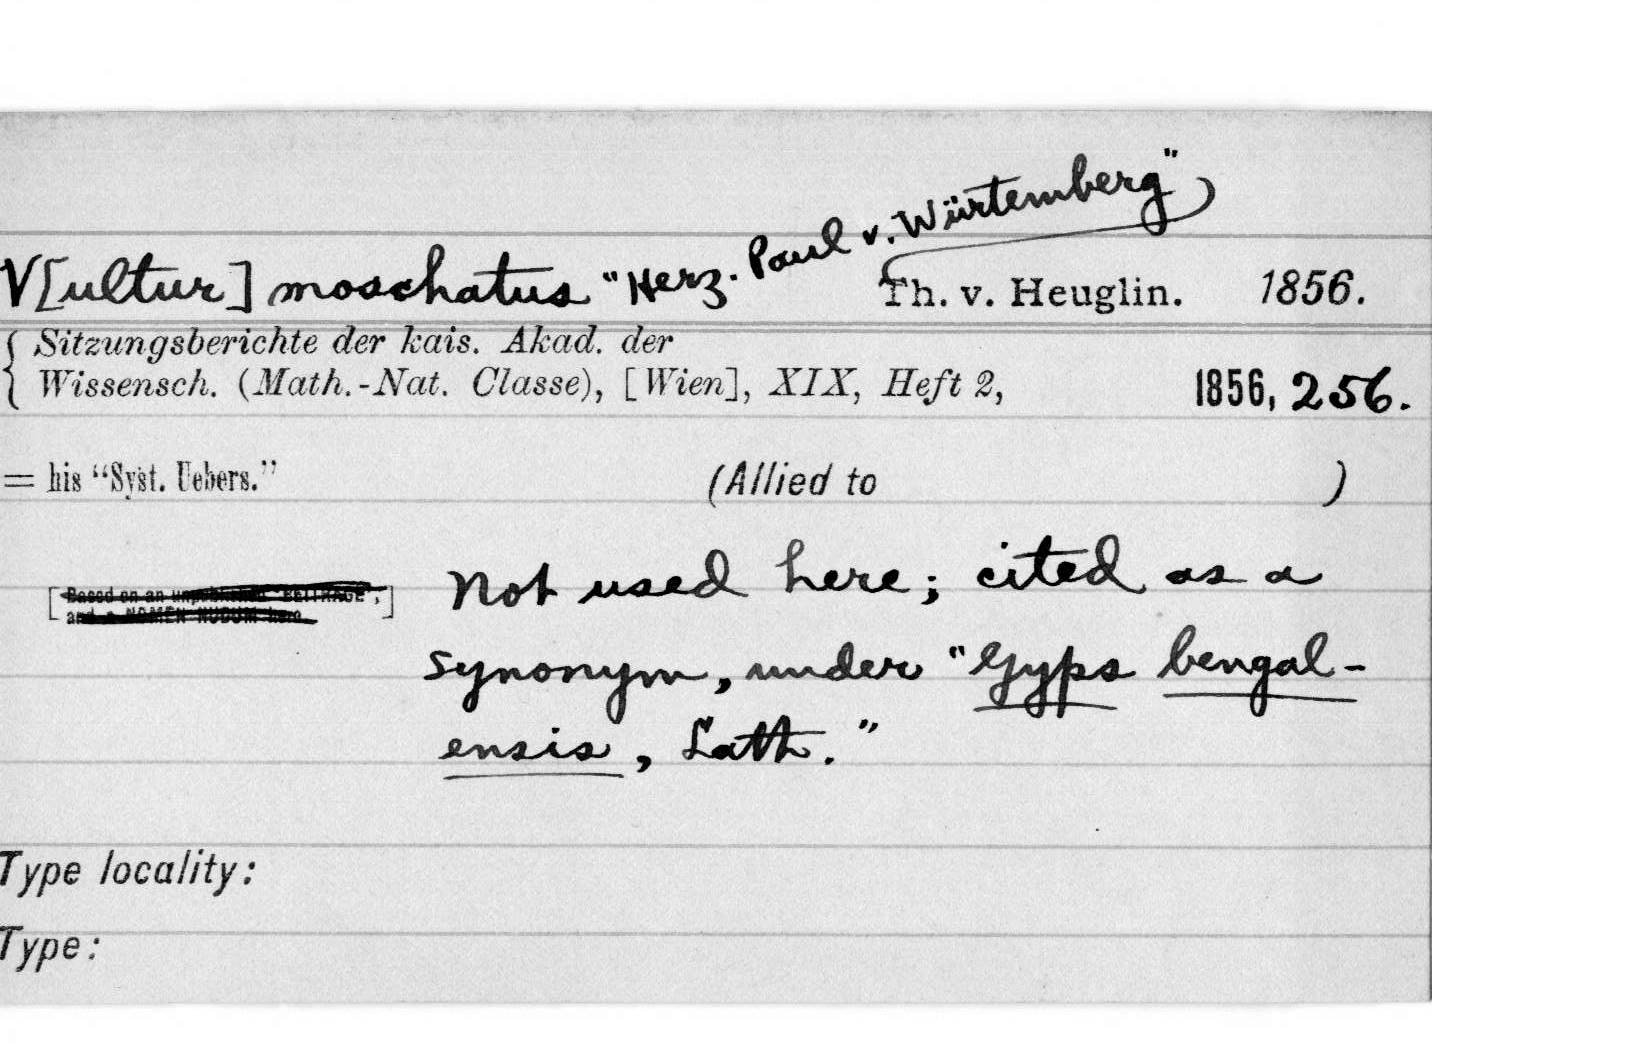 V[ultur] moschatus "Herz. Paul v. Würtemberg"
Th. v. Heuglin. 1856.
Sitzungsberichte der kais. Akad. der
Wissensch. (Math.-Nat. Classe), [Wien], XIX, Heft 2, 1856, 256.
= his "Syst. Uebers." (Allied to )
[Based on an unpublished "BEITRAGE",
and a NOMEN NUDUM here]
Not used here; cited as a
synonym, under "Gyps bengal-
ensis, Lath."
Type locality:
Type: